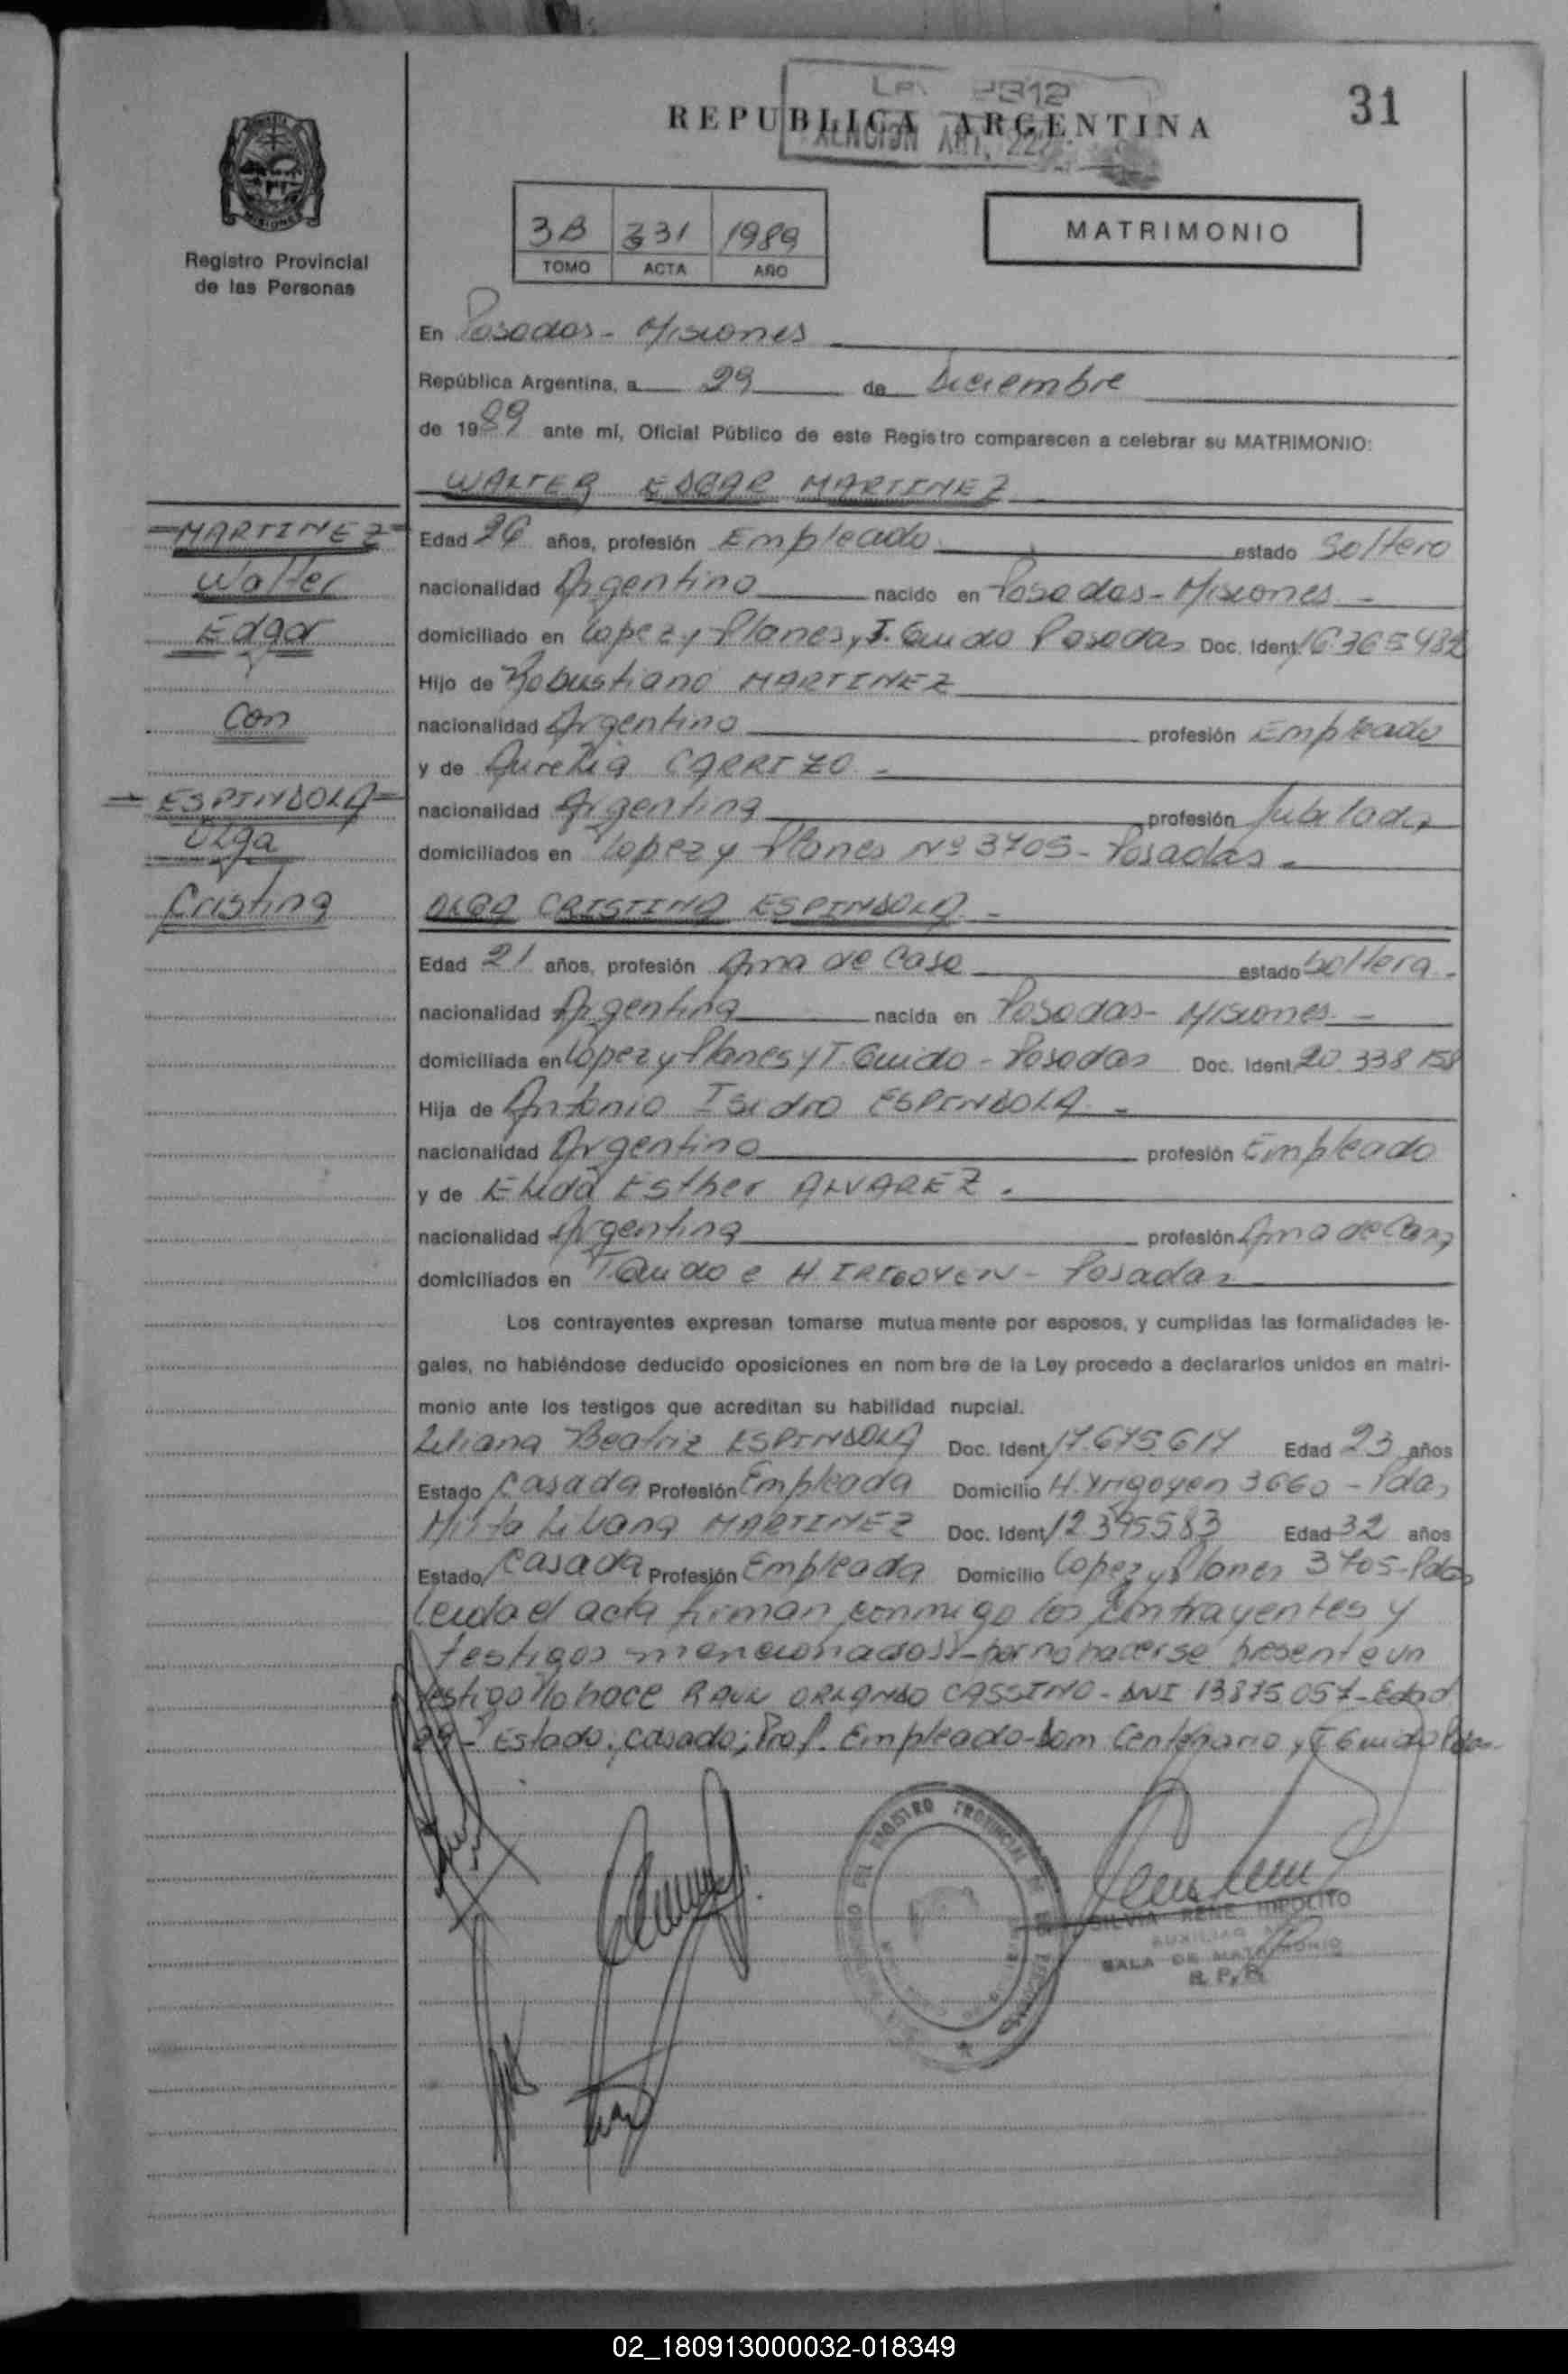 31
REPUBLICA ARGENTINA
MISIONES
Registro Provincial
de las Personas
3B 331 1989
TOMO ACTA AÑO
MATRIMONIO
En Posadas - Misiones
República Argentina, a 29 de Diciembre
de 1989 ante mí, Oficial Público de este Registro comparecen a celebrar su MATRIMONIO:
WALTER EDGAR MARTINEZ
=MARTINEZ=
Walter
Edgar
con
- ESPINDOLA =
Olga
Cristina
Edad 26 años, profesión Empleado estado Soltero
nacionalidad Argentino nacido en Posadas - Misiones -
domiciliado en Lopez y Planes y T. Guido Posadas Doc. Ident 16.365.432
Hijo de Robustiano MARTINEZ
nacionalidad Argentino profesión Empleado
y de Aurelia CARRIZO -
nacionalidad Argentina profesión Jubilada
domiciliados en Lopez y Planes Nº 3705 - Posadas -
OLGA CRISTINA ESPINDOLA -
Edad 21 años, profesión Ama de Casa estado Soltera -
nacionalidad Argentina nacida en Posadas - Misiones -
domiciliada en Lopez y Planes y T. Guido - Posadas Doc. Ident 20.338.158
Hija de Antonio Isidro ESPINDOLA -
nacionalidad Argentino profesión Empleado
y de Elida Esther ALVAREZ -
nacionalidad Argentina profesión Ama de Casa
domiciliados en T. Guido e H. IRIGOYEN - Posadas
Los contrayentes expresan tomarse mutuamente por esposos, y cumplidas las formalidades le-
gales, no habiéndose deducido oposiciones en nombre de la Ley procedo a declararlos unidos en matri-
monio ante los testigos que acreditan su habilidad nupcial.
Liliana Beatriz ESPINDOLA Doc. Ident 17.675.617 Edad 23 años
Estado Casada Profesión Empleada Domicilio H. Yrigoyen 3660 - Pdas
Mirta Liliana MARTINEZ Doc. Ident 12395583 Edad 32 años
Estado Casada Profesión Empleada Domicilio Lopez y Planes 3705 - Pdas
Leida el acta firman conmigo los contrayentes y
testigos mencionados - por no hacerse presente un
testigo lo hace RAUL ORLANDO CASSINO - DNI 13875.057 - Edad
29 - Estado: casado; Prof. Empleado - Dom Centenario y T Guido Pdas -
REGISTRO PROVINCIAL DE LAS PERSONAS
SILVIA RENE HIPOLITO
AUXILIAR
SALA DE MATRIMONIO
R. P. P.
02_180913000032-018349